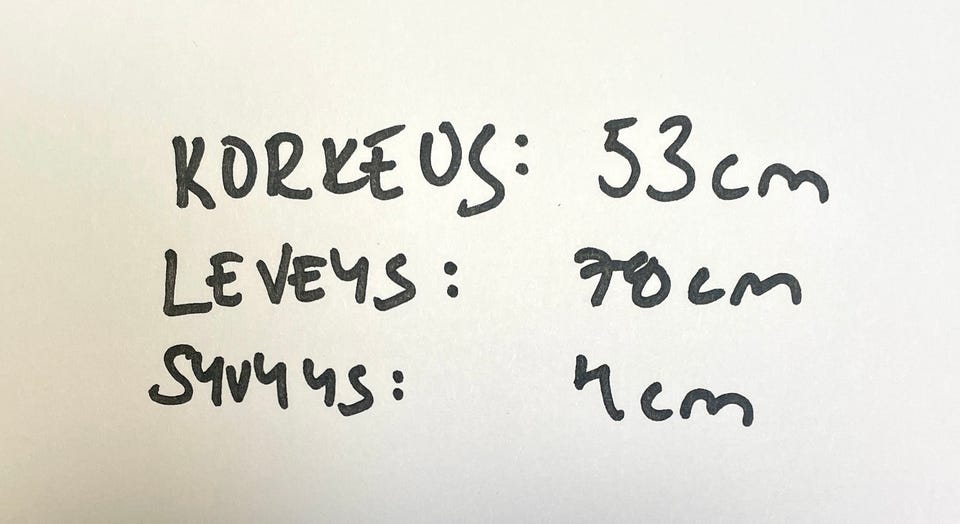 KORKEUS: 53cm
LEVEYS: 70cm
SYVYYS: 4cm